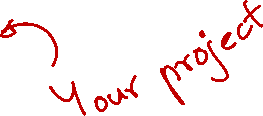 Your project